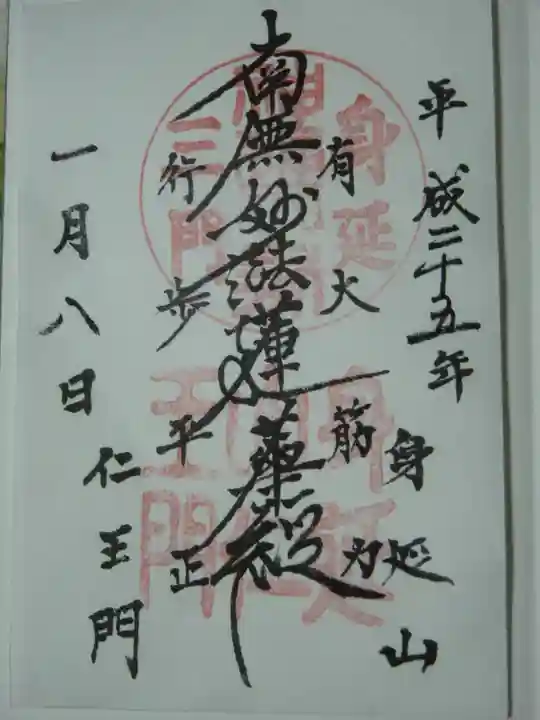 平成二十五年
身延山
有大筋力
南無妙法蓮華経
行歩平正
一月八日
仁王門
身延
三門
身延
王門